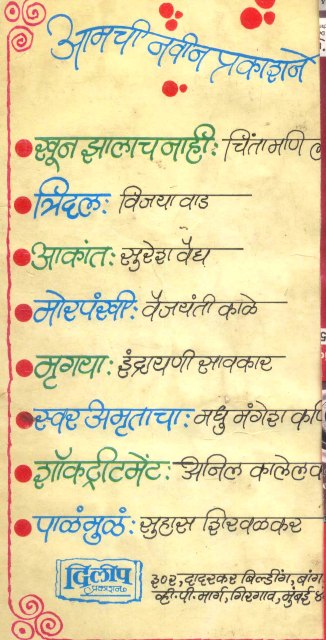 आमची नवीन प्रकाशने
खून झालाच नाही: चिंतामणि ल
त्रिदल: विजया वाड
आकांत: सुरेश वैद्य
मोरपंखी: वैजयंती काळे
मृगया: इंद्रायणी सावकार
स्वर अमृताचा: मधु मंगेश कर्णि
शॉकट्रीटमेंट: अनिल कालेलक
पाळंमुळं: सुहास शिरवळकर
दिलीप
प्रकाशन
३०२, दादरकर बिल्डींग, बांग
व्ही.पी.मार्ग, गिरगाव, मुंबई ४